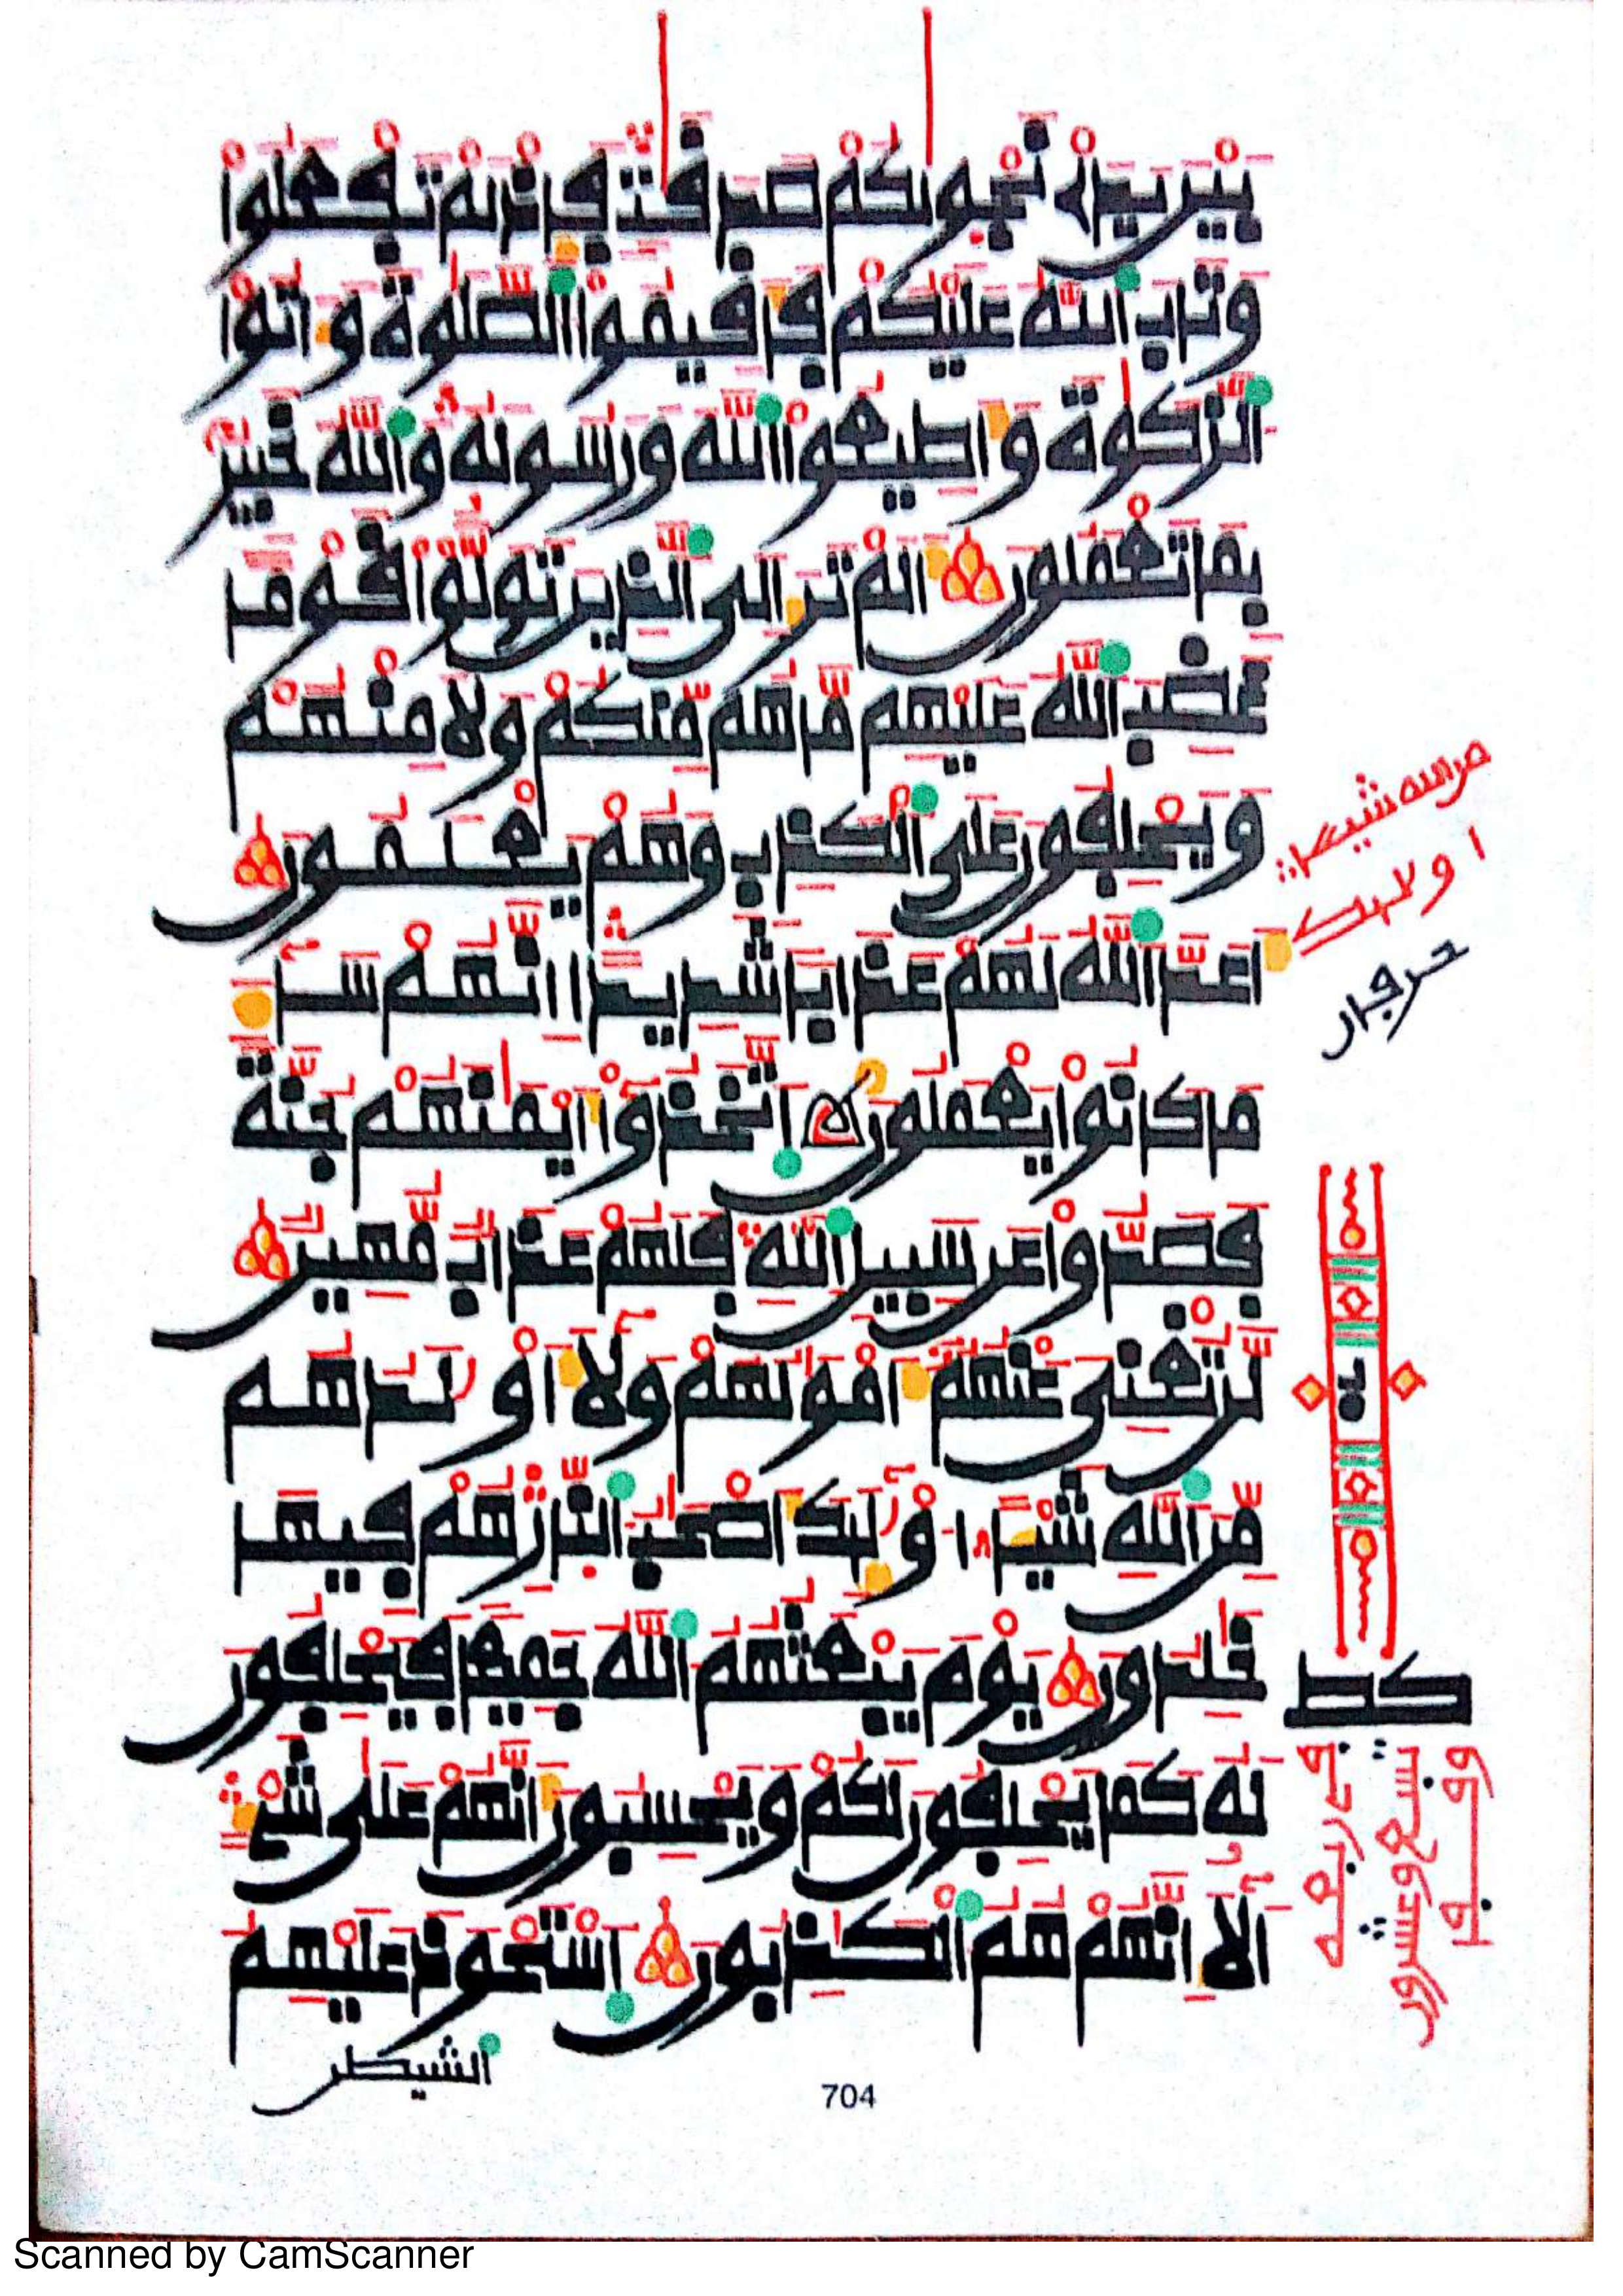 بَيْنَ يَدَيْ نَجْوٜىٰكُمْ صَدَقَٰتٖ فَإِذْ لَمْ تَفْعَلُواْ
وَتَابَ اَللَّهُ عَلَيْكُمْ فَأَقِيمُواْ اُلصَّلَوٰةَ وَءَاتُواْ
اُلزَّكَوٰةَ وَأَطِيعُواْ اُللَّهَ وَرَسُولَهُۥ وَاَللَّهُ خَبِيرُۢ
بِمَا تَعْمَلُونَ أَلَمْ تَرَ إِلَى اَلَّذِينَ تَوَلَّوْاْ قَوْماً
غَضِبَ اَللَّهُ عَلَيْهِم مَّا هُم مِّنكُمْ وَلَا مِنْهُمْ
وَيَحْلِفُونَ عَلَى اَلْكَذِبِ وَهُمْ يَعْلَمُونَ
أَعَدَّ اَللَّهُ لَهُمْ عَذَاباً شَدِيداً اِنَّهُمْ سَآءَ
مَا كَانُواْ يَعْمَلُونَ اَتَّخَذُوٓاْ أَيْمَٰنَهُمْ جُنَّةً
فَصَدُّواْ عَن سَبِيلِ اِللَّهِ فَلَهُمْ عَذَابٌ مُّهِينٌ
لَّن تُغْنِيَ عَنْهُمُۥٓ أَمْوَٰلُهُمْ وَلَآ أَوْلَٰدُهُم
مِّنَ اَللَّهِ شَيْـًٔا اُوْلَٰٓئِكَ أَصْحَٰبُ اُلنّ۪ارِ هُمْ فِيهَا
خَٰلِدُونَ يَوْمَ يَبْعَثُهُمُ اُللَّهُ جَمِيعاً فَيَحْلِفُونَ
لَهُۥ كَمَا يَحْلِفُونَ لَكُمْ وَيَحْسِبُونَ أَنَّهُمْ عَلَىٰ شَےْءٍ
اَلَآ إِنَّهُمْ هُمُ اُلْكَٰذِبُونَ اَسْتَحْوَذَ عَلَيْهِمُ
الشيطن
من الله شيـا
اولىك
حرفان
كط
704
Scanned by CamScanner